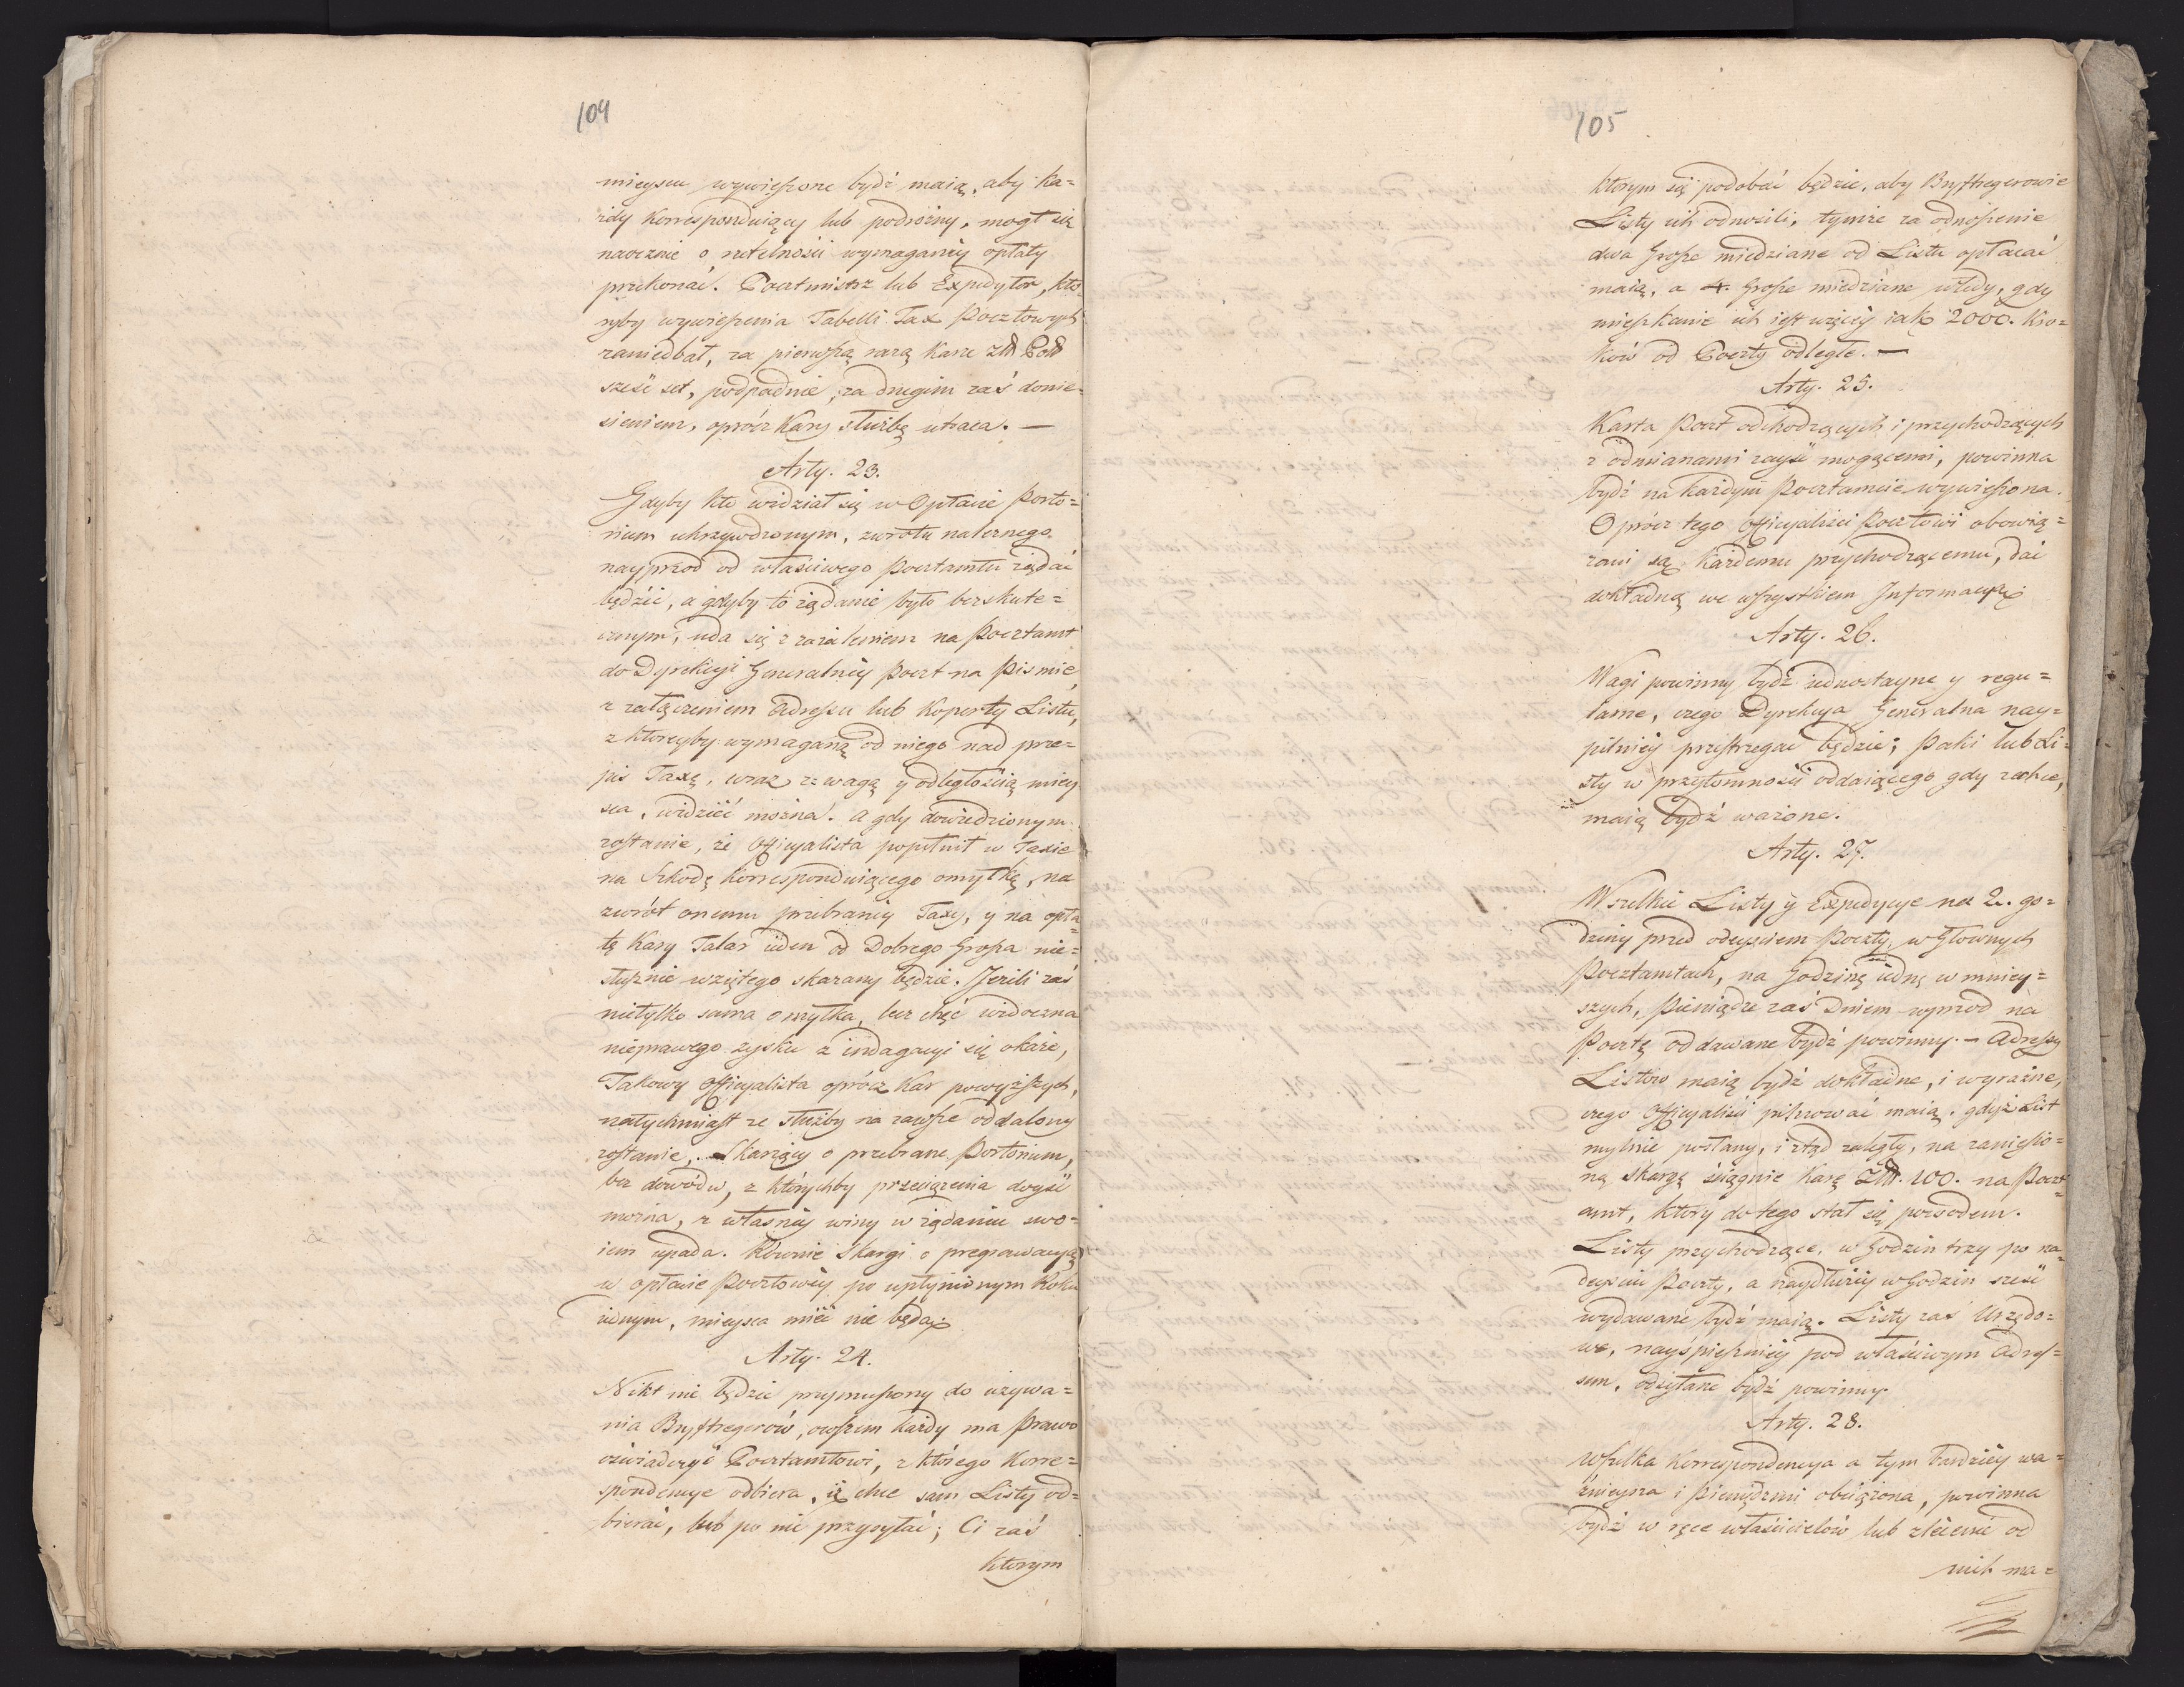 104
mieyscu wywieszone bydź maią, aby ka=
żdy Korrespondniący lub podrożny, mogł się
naocznie o rzetelności wymaganéy opłaty
przekonać. Pocztmistrz lub Expedytor, kto=
ryby wywieszenia Tabelli Tax Pocztowych
zaniedbał, za pierwszą razą Karze Zł Pol
sześć set, podpadnie, za drugim zaś donie=
sieniem, oprócz Kary służbę utraca. —
Arty. 23.
Gdyby kto widział się w Opłacie porto=
rium ukrzywdzonym, zwrotu należnego
nayprzod od właściwego Pocztamtu żądać
będzie, a gdyby to żądanie było bezskute=
cznym, uda się z zażaleniem na Pocztamt
do Dyrekcyi Generalnéy Poczt na piśmie
z załączeniem Adressu lub Koperty Listu,
z ktoreyby wymaganą od niego nad prze=
pis Taxę, wraz z wagą y odległością miey
sca, widzieć można. A gdy dowiedzionym
zostanie, że Officyalista popełnił w Taxie
na szkodę Korresponduiącego omyłkę, na
zwrót onemu przebranéy Taxy, y na opła=
tę Kary Talar ieden od Dobrego Grosza nie=
słusznie wziętego skazany będzie. Jeżeli zaś
nietylko sama omyłka, lecz chęć widoczna
nieprawego zysku z indagacyi się okaże,
Takowy Officyalista oprócz Kar powyższych,
natychmiast ze służby na zawsze oddalony
zostanie. Skarżący o przebrane Portorium,
bez dowódu, z którychby przeciążenia doyść
można, z własnéy winy w żądaniu swo=
iem upada. Równie Skargi o pregrawacyą
w opłacie Pocztowéy po upłynionym Roku
iednym, mieysca mieć nie będą.
Arty. 24.
Nikt nie będzie przymuszony do używa=
nia Bryftregerów, owszem każdy ma prawo
oświadczyć Pocztamtowi, z którego Korre=
spondencye odbiera, iż chce sam Listy od=
bierać, lub po nie przysyłać; Ci zaś
którym
105
którym się podobać będzie, aby Bryftregerowie
Listy ich odnosili, tymże za odnoszenie
dwa Grosze miedziane od Listu opłacać
maią, a 4. Grosze miedziane wtedy, gdy
mieszkanie ich iest więcéy iak 2000. Kro=
ków od Poczty odległe. —
Arty. 25.
Karta Poczt odchodzących i przychodzących
z odmianami zayść mogącemi, powinna
bydź na każdym Pocztamcie wywieszona.
Oprócz tego Officyaliści Pocztowi obowią=
zani są każdemu przychodzącemu, dać
dokładną we wszystkiem Informacyą.
Arty. 26.
Wagi powinny bydź iednostayne y regu=
larne, czego Dyrekcya Generalna nay=
pilniéy przestrzegać będzie; Paki lub Li=
sty w przytomności oddaiącego gdy zechce,
maią bydź ważone.
Arty. 27.
Wszelkie Listy y Expedycye na 2. go=
dziny przed odeyściem Poczty, w Głownych
Pocztamtach, na Godzinę iedną w mniey=
szych, Pieniądze zaś Dniem wprzod na
Pocztę oddawane bydź powinny. — Adressy
Listow maią bydź dokładne, i wyraźne,
czego Officyaliści pilnować maią, gdyż List
mylnie posłany, i ztąd zaległy, na zaniesio=
ną Skargę ściągnie Karę Zł. 100. na Poczt=
amt, który do tego stał się powodem.
Listy przychodzące, w Godzin trzy po na=
deyściu Poczty, a naydłużéy w Godzin sześć
wydawane bydź maią. Listy zaś Urzędo=
we, nayśpieszniéy pod właściwym Adres=
sem, odsyłane bydź powinny.
Arty. 28.
Wszelka Korrespondencya a tym bardziéy wa=
żnieysza i Pieniędzmi obciążona, powinna
bydź w ręce właścicielów lub zlecenie od
nich ma=